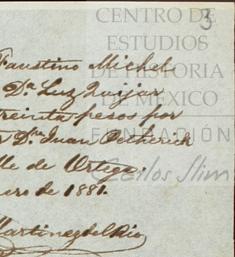 3
CENTRO DE
ESTUDIOS
DE HISTORIA
DE MÉXICO
FUNDACIÓN
Carlos Slim
Faustino Michel
Da. Luz Quijar
treinta pesos por
Dn. Juan Petherick
lle de Ortega.
ero de 1881.
Martinez del Rio